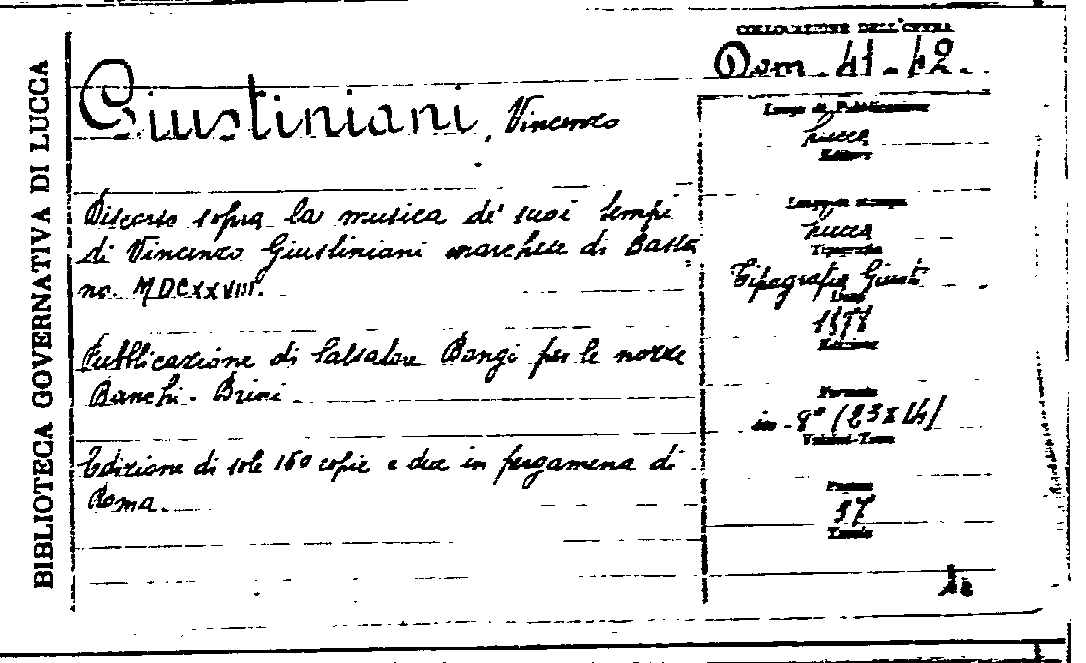 BIBLIOTECA GOVERNATIVA DI LUCCA
COLLOCAZIONE DELL'OPERA
Dom. 41.42.
Giustiniani, Vincenzo
Discorso sopra la musica de' suoi tempi
di Vincenzo Giustiniani marchese di Bassa
no. MDCXXVIII.
Pubblicazione di Salvatore Bongi per le nozze
Banchi - Brini
Edizione di sole 160 copie e due in pergamena di
Roma.
Luogo di Pubblicazione
Lucca
Editore
Luogo di stampa
Lucca
Tipografia
Tipografia Giusti
Anno
Edizione
Formato
in-8° (23x14)
Volumi-Tomi
Pagine
37
Tavole